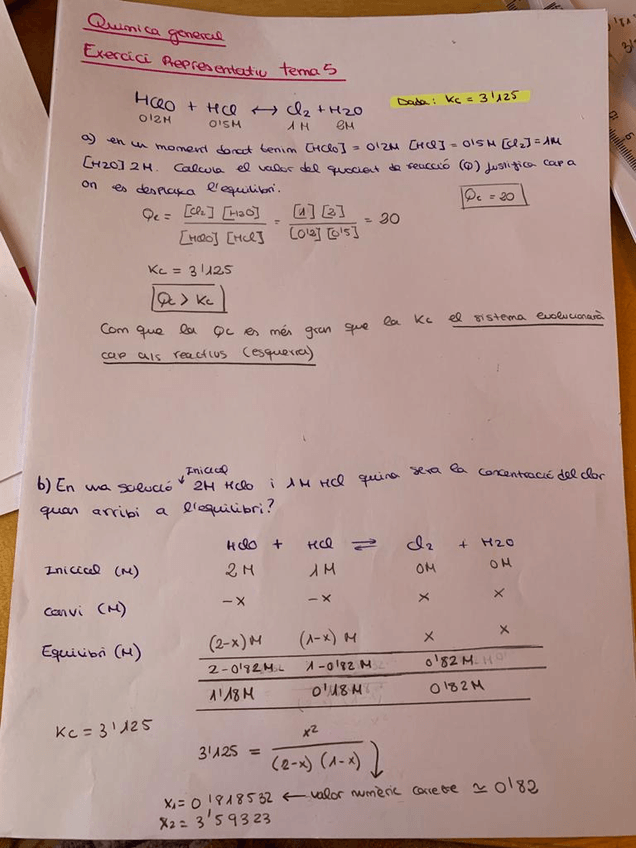 Química general
Exercici Representatiu tema 5
HClO + HCl ⟷ Cl2 + H2O Dada: Kc = 3'125
0'2M 0'5M 1M 3M
a) en un moment donat tenim [HClO] = 0'2M [HCl] = 0'5M [Cl2] = 1M
[H2O] 2M. Calcula el valor del quocient de reacció (Q) justifica cap a
on es desplaça l'equilibri.
Qc = [Cl2] [H2O] / [HClO] [HCl] = [1] [3] / [0'2] [0'5] = 30
Qc = 30
Kc = 3'125
Qc > Kc
Com que la Qc es més gran que la Kc el sistema evolucionarà
cap als reactius (esquerra)
Inicial
b) En una solució 2M HClO i 1M HCl quina sera la concentració del clor
quan arribi a l'equilibri?
HClO + HCl ⇌ Cl2 + H2O
Inicial (M) 2M 1M 0M 0M
Canvi (M) -x -x x x
Equilibri (M) (2-x)M (1-x) M x x
2-0'82M 1-0'82 M 0'82M
1'18M 0'18M 0'82M
Kc = 3'125
3'125 = x² / (2-x) (1-x)
x1 = 0'818532 ← valor numèric correcte ≃ 0'82
x2 = 3'59323